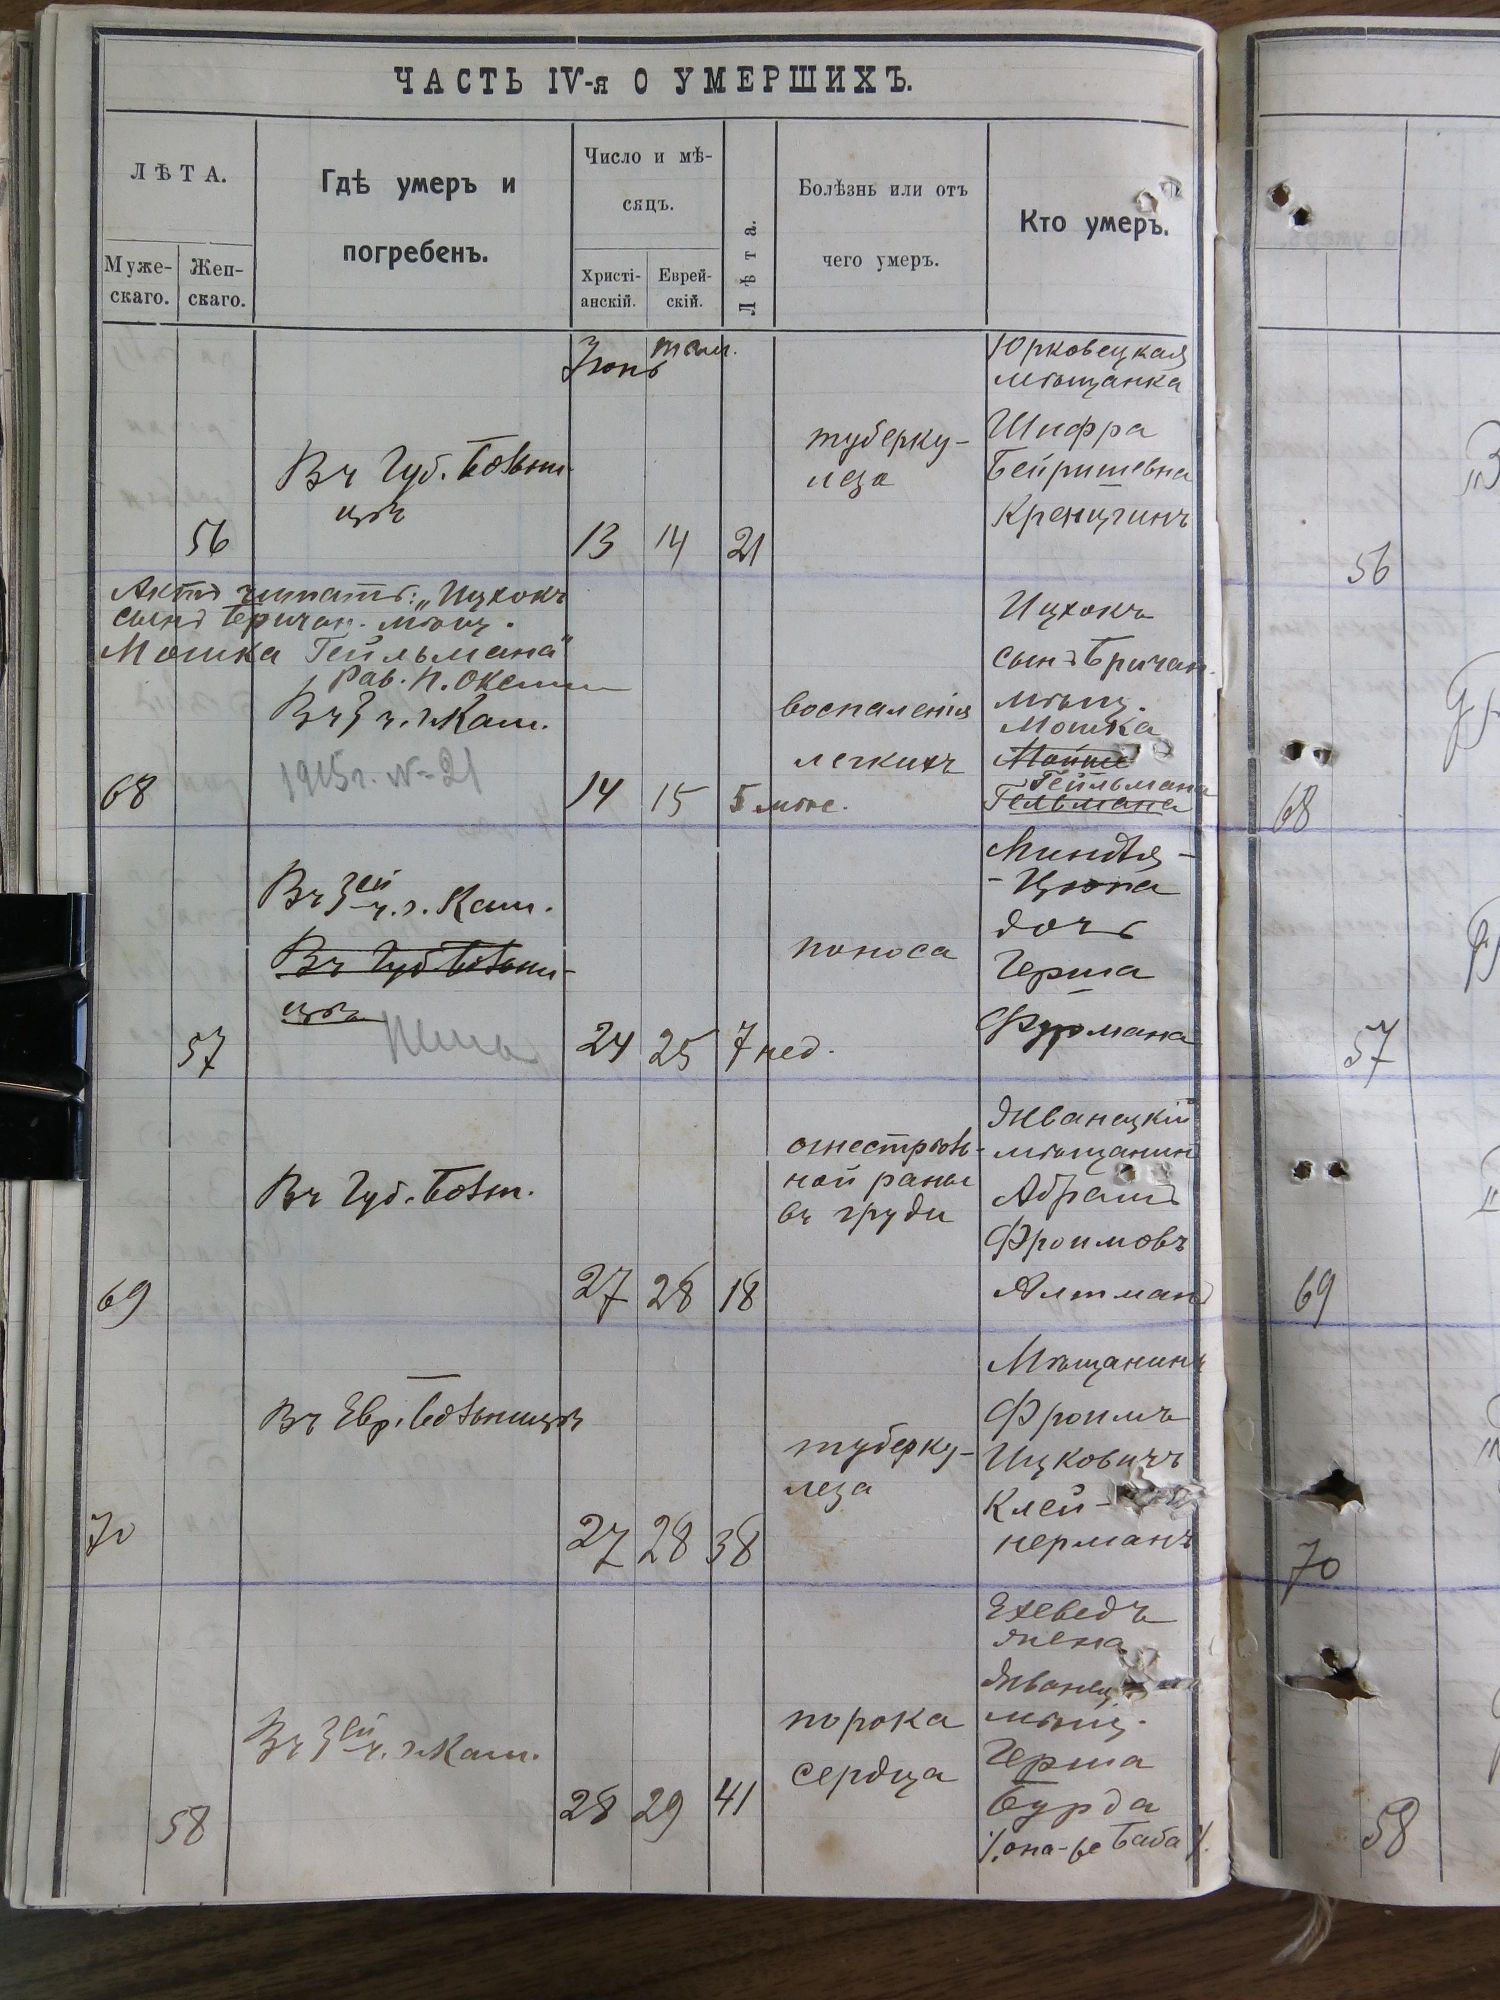 ЧАСТЬ IV-я О УМЕРШИХЪ.
ЛѢТА.
Муже-
скаго.
Жен-
скаго.
Гдѣ умеръ и
погребенъ.
Число и мѣ-
сяцъ.
Христі-
анскій.
Еврей-
скій.
Лѣта.
Болѣзнь или отъ
чего умеръ.
Кто умеръ.
Іюнь
там.
56
Въ Губ. Больни-
цѣ
13
14
21
туберку-
леза
Юрковецкая
мѣщанка
Шифра
Бейришевна
Кренцгинъ
Актъ читать: „Ицхокъ
сынъ Бричан. мѣщ.
Мошка Гейльмана"
Рав.
68
Въ 3 ч. г. Кам.
1915 г. N=21
14
15
5 мѣс.
воспаленія
легкихъ
Ицхокъ
сынъ Бричан.
мѣщ.
Мошка
Мойше
Гейльмана
Гельмана
57
Въ 3ей ч. г. Кам.
Въ Губ. Больни-
цѣ
24
25
7 нед.
поноса
Миндля-
-Цюпа
дочь
Герша
Фурмана
69
Въ Губ. Больн.
27
28
18
огнестрѣль-
ной раны
въ груди
Жванецкій
мѣщанинъ
Абрамъ
Фроимовъ
Алтманъ
70
Въ Евр. больницѣ
27
28
38
туберку-
леза
Мѣщанинъ
Фроимъ
Ицковичъ
Клей-
нерманъ
58
Въ 3ей ч. г. Кам.
28
29
41
порока
сердца
Ехеведъ
жена
Жванец
мѣщ.
Герша
Бурда
/. она-же Баба /.
56
68
57
69
70
58